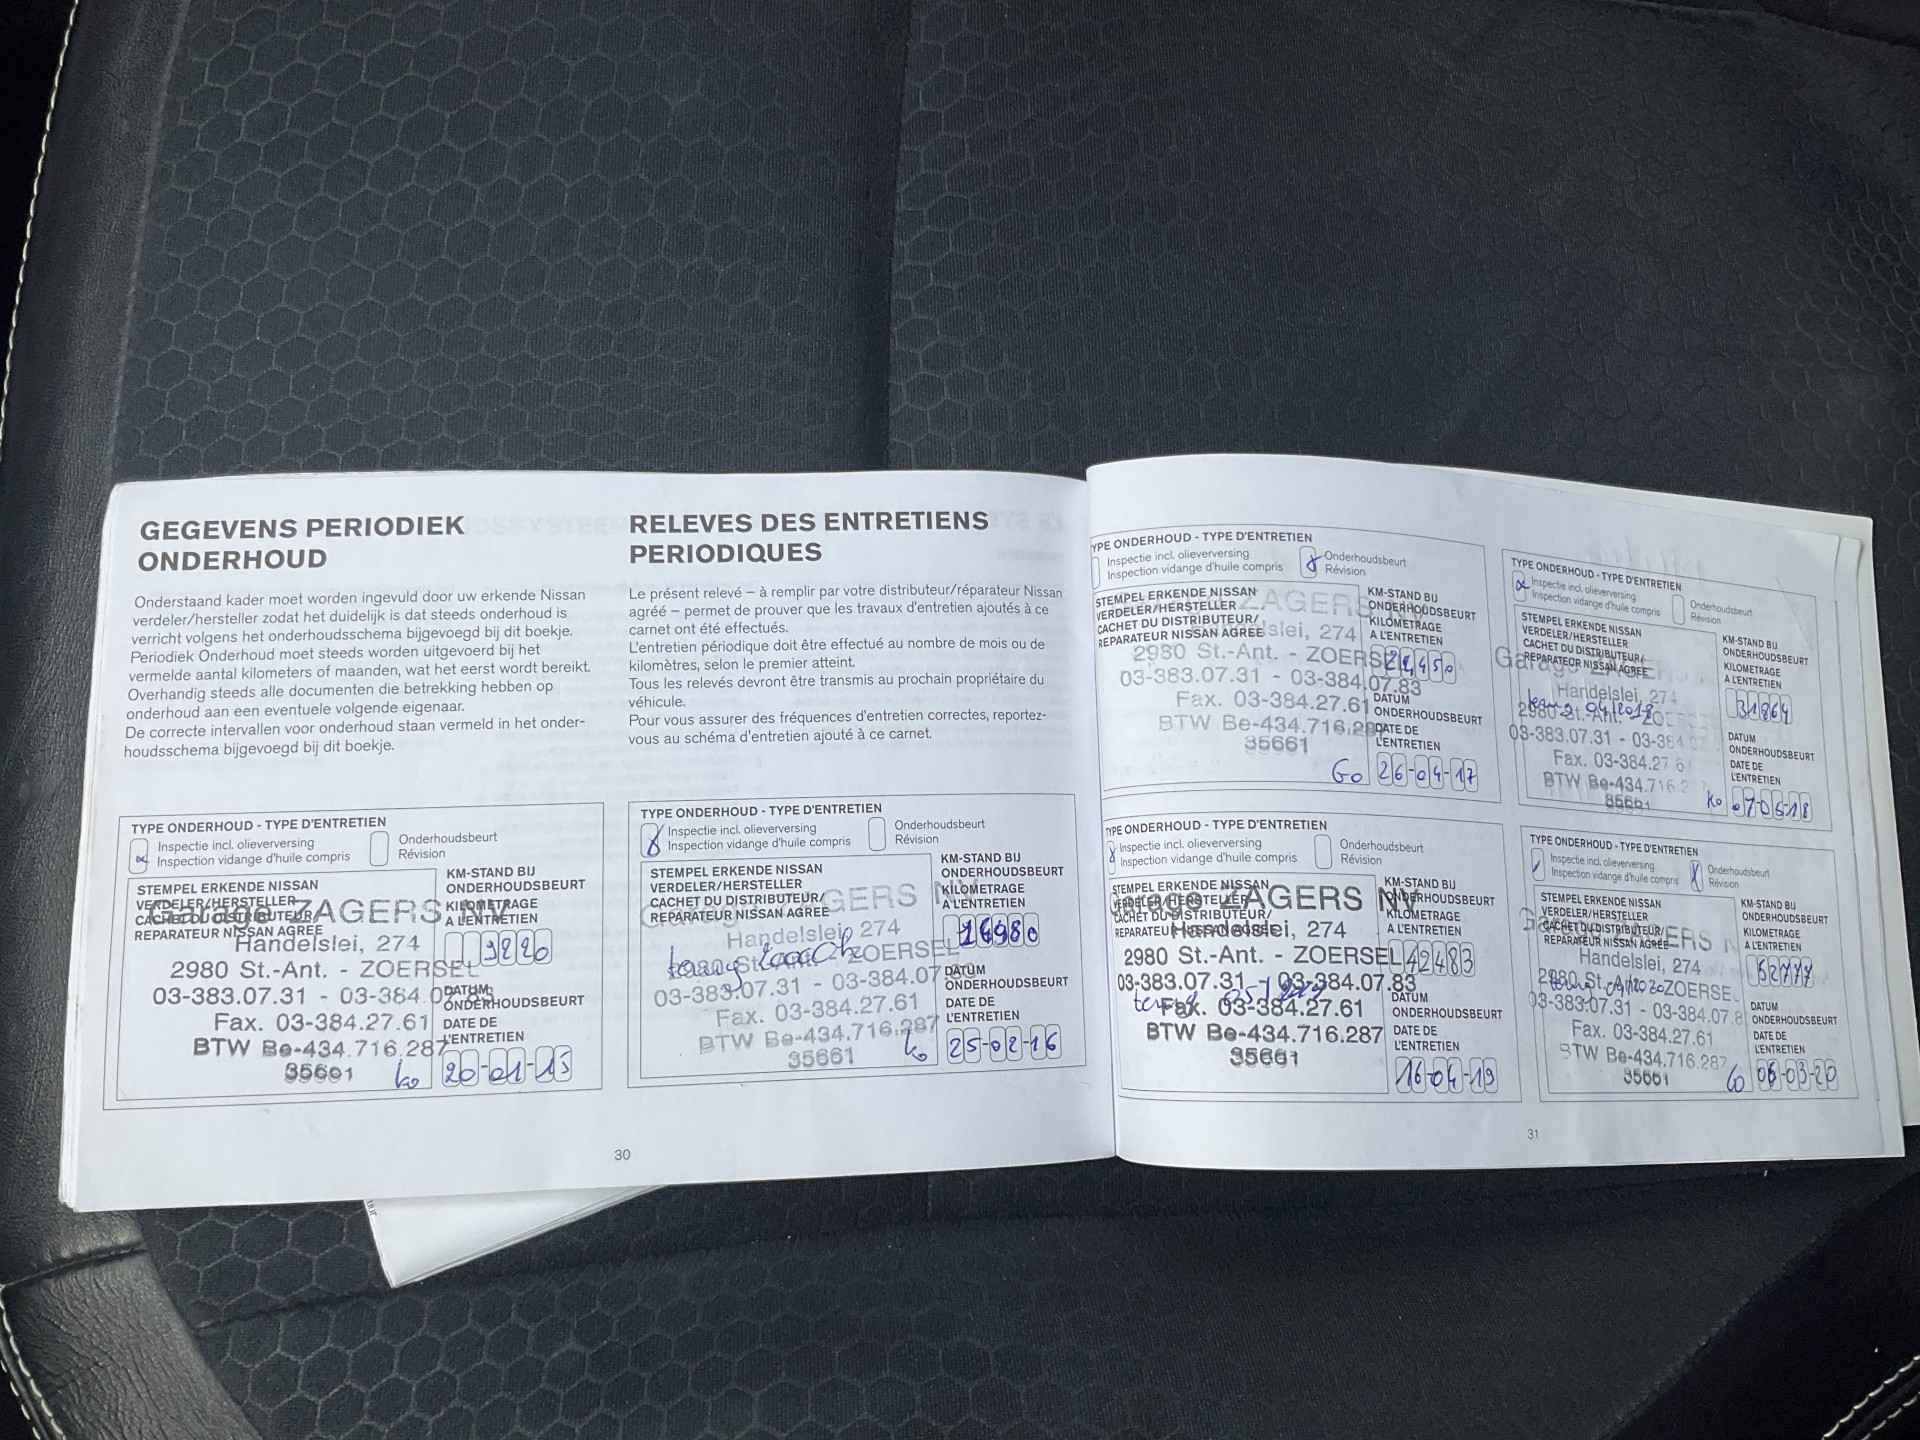 GEGEVENS PERIODIEK
ONDERHOUD
Onderstaand kader moet worden ingevuld door uw erkende Nissan
verdeler/hersteller zodat het duidelijk is dat steeds onderhoud is
verricht volgens het onderhoudsschema bijgevoegd bij dit boekje.
Periodiek Onderhoud moet steeds worden uitgevoerd bij het
vermelde aantal kilometers of maanden, wat het eerst wordt bereikt.
Overhandig steeds alle documenten die betrekking hebben op
onderhoud aan een eventuele volgende eigenaar.
De correcte intervallen voor onderhoud staan vermeld in het onder-
houdsschema bijgevoegd bij dit boekje.
RELEVES DES ENTRETIENS
PERIODIQUES
Le présent relevé – à remplir par votre distributeur/réparateur Nissan
agréé – permet de prouver que les travaux d'entretien ajoutés à ce
carnet ont été effectués.
L'entretien périodique doit être effectué au nombre de mois ou de
kilomètres, selon le premier atteint.
Tous les relevés devront être transmis au prochain propriétaire du
véhicule.
Pour vous assurer des fréquences d'entretien correctes, reportez-
vous au schéma d'entretien ajouté à ce carnet.
TYPE ONDERHOUD - TYPE D'ENTRETIEN
Inspectie incl. olieverversing
Inspection vidange d'huile compris
Onderhoudsbeurt
Révision
STEMPEL ERKENDE NISSAN
VERDELER/HERSTELLER
CACHET DU DISTRIBUTEUR/
REPARATEUR NISSAN AGREE
Garage ZAGERS NV
Handelslei, 274
2980 St.-Ant. - ZOERSEL
03-383.07.31 - 03-384.07.83
Fax. 03-384.27.61
BTW Be-434.716.287
35661
KM-STAND BIJ
ONDERHOUDSBEURT
KILOMETRAGE
A L'ENTRETIEN
9220
DATUM
ONDERHOUDSBEURT
DATE DE
L'ENTRETIEN
20-01-15
TYPE ONDERHOUD - TYPE D'ENTRETIEN
Inspectie incl. olieverversing
Inspection vidange d'huile compris
Onderhoudsbeurt
Révision
STEMPEL ERKENDE NISSAN
VERDELER/HERSTELLER
CACHET DU DISTRIBUTEUR/
REPARATEUR NISSAN AGREE
Garage ZAGERS NV
Handelslei, 274
2980 St.-Ant. - ZOERSEL
03-383.07.31 - 03-384.07
Fax. 03-384.27.61
BTW Be-434.716.287
35661
KM-STAND BIJ
ONDERHOUDSBEURT
KILOMETRAGE
A L'ENTRETIEN
16980
DATUM
ONDERHOUDSBEURT
DATE DE
L'ENTRETIEN
25-02-16
30
TYPE ONDERHOUD - TYPE D'ENTRETIEN
Inspectie incl. olieverversing
Inspection vidange d'huile compris
Onderhoudsbeurt
Révision
STEMPEL ERKENDE NISSAN
VERDELER/HERSTELLER
CACHET DU DISTRIBUTEUR/
REPARATEUR NISSAN AGREE
ZAGERS NV
Handelslei, 274
2980 St.-Ant. - ZOERSEL
03-383.07.31 - 03-384.07.83
Fax. 03-384.27.61
BTW Be-434.716.287
35661
KM-STAND BIJ
ONDERHOUDSBEURT
KILOMETRAGE
A L'ENTRETIEN
DATUM
ONDERHOUDSBEURT
DATE DE
L'ENTRETIEN
Go 26-04-17
TYPE ONDERHOUD - TYPE D'ENTRETIEN
Inspectie incl. olieverversing
Inspection vidange d'huile compris
Onderhoudsbeurt
Révision
STEMPEL ERKENDE NISSAN
VERDELER/HERSTELLER
CACHET DU DISTRIBUTEUR/
REPARATEUR NISSAN AGREE
Garage ZAGERS
Handelslei, 274
2980 St.-Ant. - ZOERSEL
03-383.07.31 - 03-384
Fax. 03-384.27.61
BTW Be-434.716.2
35661
KM-STAND BIJ
ONDERHOUDSBEURT
KILOMETRAGE
A L'ENTRETIEN
31864
DATUM
ONDERHOUDSBEURT
DATE DE
L'ENTRETIEN
07-05-18
TYPE ONDERHOUD - TYPE D'ENTRETIEN
Inspectie incl. olieverversing
Inspection vidange d'huile compris
Onderhoudsbeurt
Révision
STEMPEL ERKENDE NISSAN
VERDELER/HERSTELLER
CACHET DU DISTRIBUTEUR/
REPARATEUR NISSAN AGREE
Garage ZAGERS NV
Handelslei, 274
2980 St.-Ant. - ZOERSEL
03-383.07.31 - 03-384.07.83
Fax. 03-384.27.61
BTW Be-434.716.287
35661
KM-STAND BIJ
ONDERHOUDSBEURT
KILOMETRAGE
A L'ENTRETIEN
42483
DATUM
ONDERHOUDSBEURT
DATE DE
L'ENTRETIEN
16-04-19
TYPE ONDERHOUD - TYPE D'ENTRETIEN
Inspectie incl. olieverversing
Inspection vidange d'huile compris
Onderhoudsbeurt
Révision
STEMPEL ERKENDE NISSAN
VERDELER/HERSTELLER
CACHET DU DISTRIBUTEUR/
REPARATEUR NISSAN AGREE
Garage ZAGERS N
Handelslei, 274
2980 St.-Ant. ZOERSEL
03-383.07.31 - 03-384.07.8
Fax. 03-384.27.61
BTW Be-434.716.287
35661
KM-STAND BIJ
ONDERHOUDSBEURT
KILOMETRAGE
A L'ENTRETIEN
52777
DATUM
ONDERHOUDSBEURT
DATE DE
L'ENTRETIEN
Go 06-03-20
31